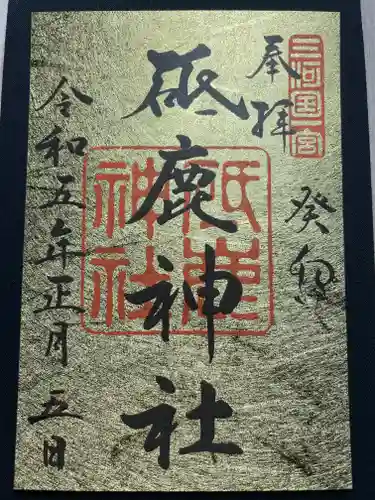 三河国一宮
奉拝
癸卯
砥鹿神社
砥鹿
神社
令和五年正月五日